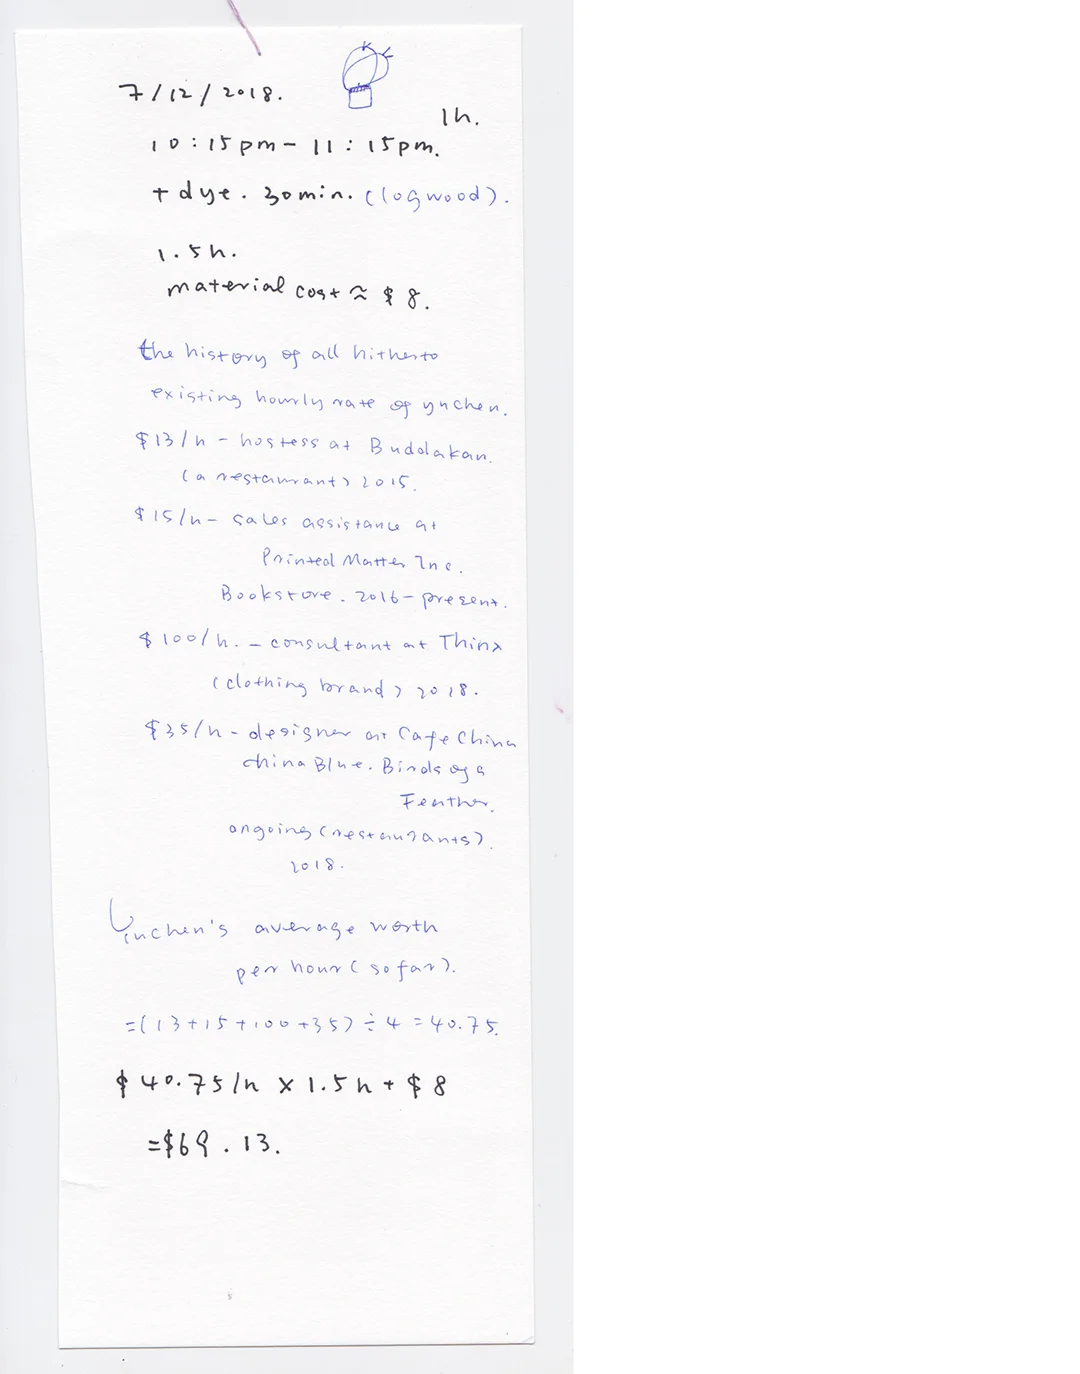 7/12/2018.
1h.
10:15pm- 11:15pm.
+ dye. 30min. (logwood).
1.5h.
material cost ≈ $8.
the history of all hitherto
existing hourly rate of ynchen.
$13/h - hostess at Buddakan.
(a restaurant) 2015.
$15/h- sales assistance at
Printed Matter Inc.
Bookstore. 2016-present.
$100/h. - consultant at Thinx
(clothing brand) 2018.
$35/h - designer at Cafe China
China Blue. Birds of a
Feather.
ongoing (restaurants).
2018.
Yinchen's average worth
per hour (so far).
=(13+15+100+35)÷4=40.75.
$40.75/h x 1.5h + $8
=$69.13.